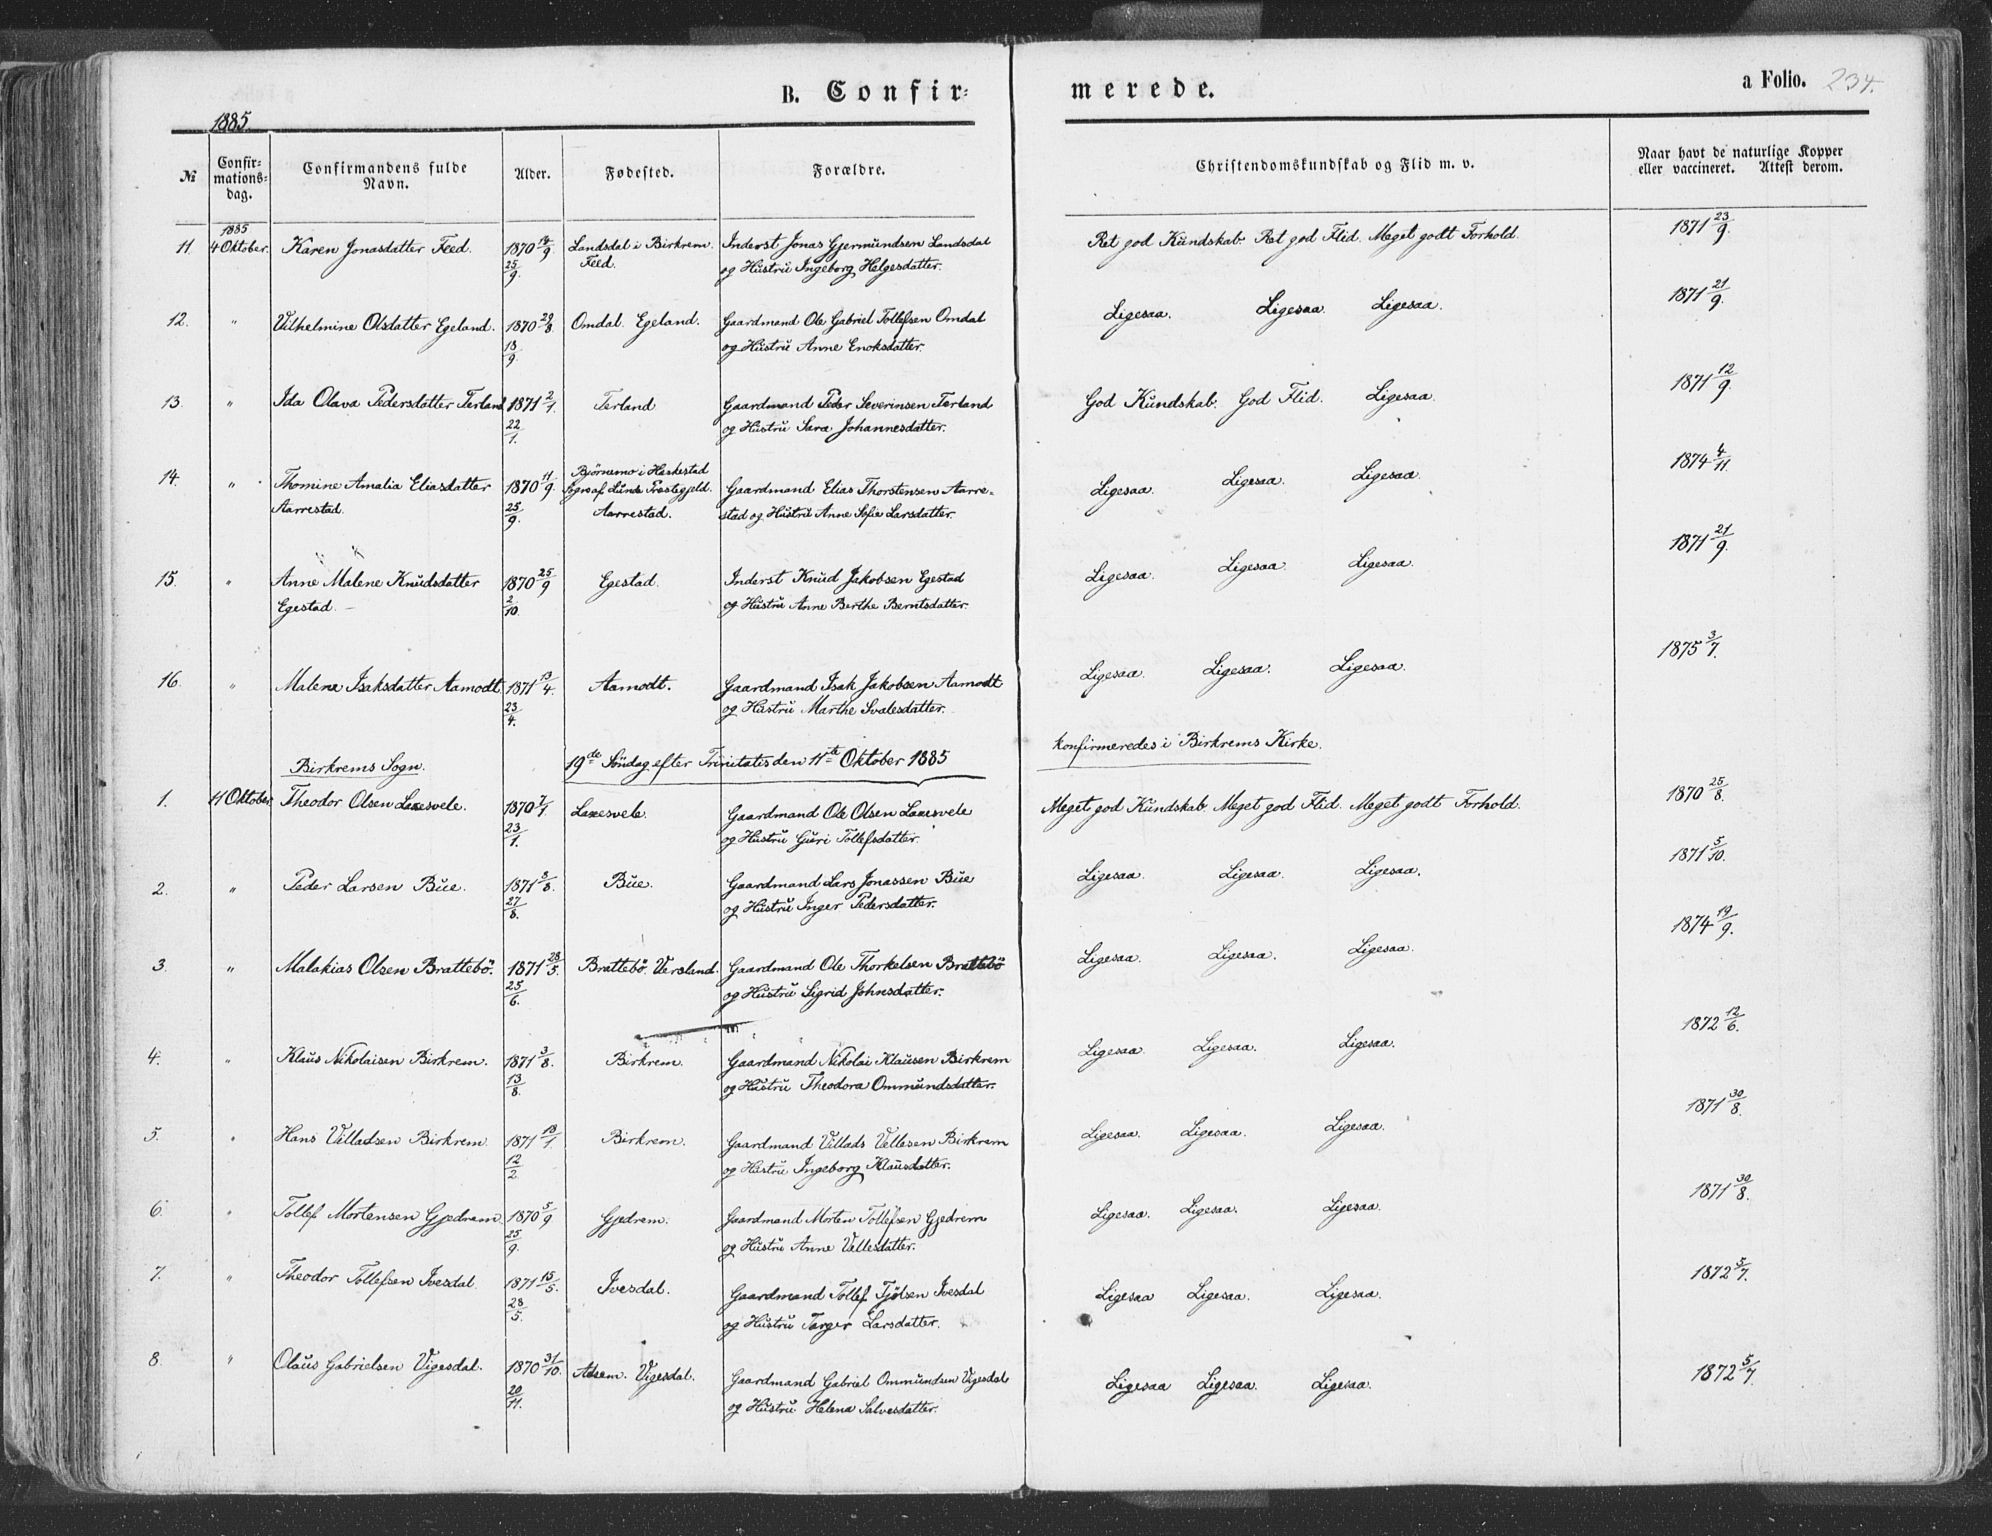 B. Confir-
merede.
a Folio. 234.
1885.
№
Confir-
mations-
dag.
Confirmandens fulde
Navn.
Alder.
Fødested.
Forældre.
Christendomskundskab og Flid m. v.
Naar havt de naturlige Kopper
eller vaccineret. Attest derom.
1885
11. 4 Oktober. Karen Jonasdatter Feed. 1870 18/9. Landsdal i Birkrem. Inderst Jonas Gjermundsen Landsdal Ret god Kundskab. Ret god Flid. Meget godt Forhold. 1871 23/9.
25/9. Feed. og Hustru Ingeborg Helgesdatter.
12. " Vilhelmine Olsdatter Egeland. 1870 29/8. Omdal. Egeland. Gaardmand Ole Gabriel Tollefsen Omdal Ligesaa. Ligesaa. Ligesaa. 1871 21/9.
18/9. og Hustru Anne Enoksdatter.
13. " Ida Olava Pedersdatter Terland 1871 2/1. Terland Gaardmand Peder Severinsen Terland God Kundskab. God Flid. Ligesaa. 1871 12/9.
22/1. og Hustru Sara Johannesdatter.
14. " Thomine Amalia Eliasdatter 1870 11/9. Bjørnemo i Heskestad
Sogn af Lunds Præstegjeld. Gaardmand Elias Thorstensen Aarre- Ligesaa. Ligesaa. Ligesaa. 1874 4/11.
Aarrestad. 25/9. Aarrestad. stad og Hustru Anne Sofie Larsdatter.
15. " Anne Malene Knudsdatter 1870 25/9 Egestad. Inderst Knud Jakobsen Egestad Ligesaa. Ligesaa. Ligesaa. 1871 21/9.
Egestad. 2/10. og Hustru Anne Berthe Berntsdatter.
16. " Malena Isaksdatter Aamodt 1871 13/4. Aamodt. Gaardmand Isak Jakobsen Aamodt Ligesaa. Ligesaa. Ligesaa. 1875 3/7.
23/4. og Hustru Marthe Svalesdatter.
Birkrems Sogn. 19de Söndag efter Trinitatis den 11te Oktober 1885 konfirmeredes i Birkrems Kirke.
1. 11 Oktober. Theodor Olsen Laxesvele. 1870 7/1. Laxesvele. Gaardmand Ole Olsen Laxesvele Meget god Kundskab. Meget god Flid. Meget godt Forhold. 1870 25/8.
23/1. og Hustru Guri Tollefsdatter.
2. " Peder Larsen Bue. 1871 8/8. Bue. Gaardmand Lars Jonassen Bue Ligesaa. Ligesaa. Ligesaa. 1871 5/10.
27/8. og Hustru Inger Pedersdatter.
3. " Malakias Olsen Brattebö. 1871 28/5. Brattebö. Versland. Gaardmand Ole Thorkelsen Brattebö Ligesaa. Ligesaa. Ligesaa. 1874 19/9.
25/6. og Hustru Sigrid Johnsdatter.
4. " Klaus Nikolaisen Birkrem. 1871 3/8. Birkrem. Gaardmand Nikolai Klausen Birkrem Ligesaa. Ligesaa. Ligesaa. 1872 12/6.
13/8. og Hustru Theodora Ommundsdatter.
5. " Hans Villadsen Birkrem. 1871 18/1. Birkrem. Gaardmand Villads Vellesen Birkrem Ligesaa. Ligesaa. Ligesaa. 1871 30/8.
12/2 og Hustru Ingeborg Klausdatter.
6. " Tollef Mortensen Gjedrem. 1870 5/9 Gjedrem. Gaardmand Morten Tollefsen Gjedrem Ligesaa. Ligesaa. Ligesaa. 1871 30/8.
25/9. og Hustru Anne Vellesdatter.
7. " Theodor Tollefsen Ivesdal 1871 15/5. Ivesdal. Gaardmand Tollef Tjölsen Ivesdal Ligesaa Ligesaa. Ligesaa. 1872 5/7.
28/5. og Hustru Targer Larsdatter.
8. " Olaus Gabrielsen Vigesdal. 1870 31/10. Adsem. Vigesdal. Gaardmand Gabriel Ommundsen Vigesdal Ligesaa Ligesaa. Ligesaa. 1872 5/7.
20/11. og Hustru Helena Salvesdatter.